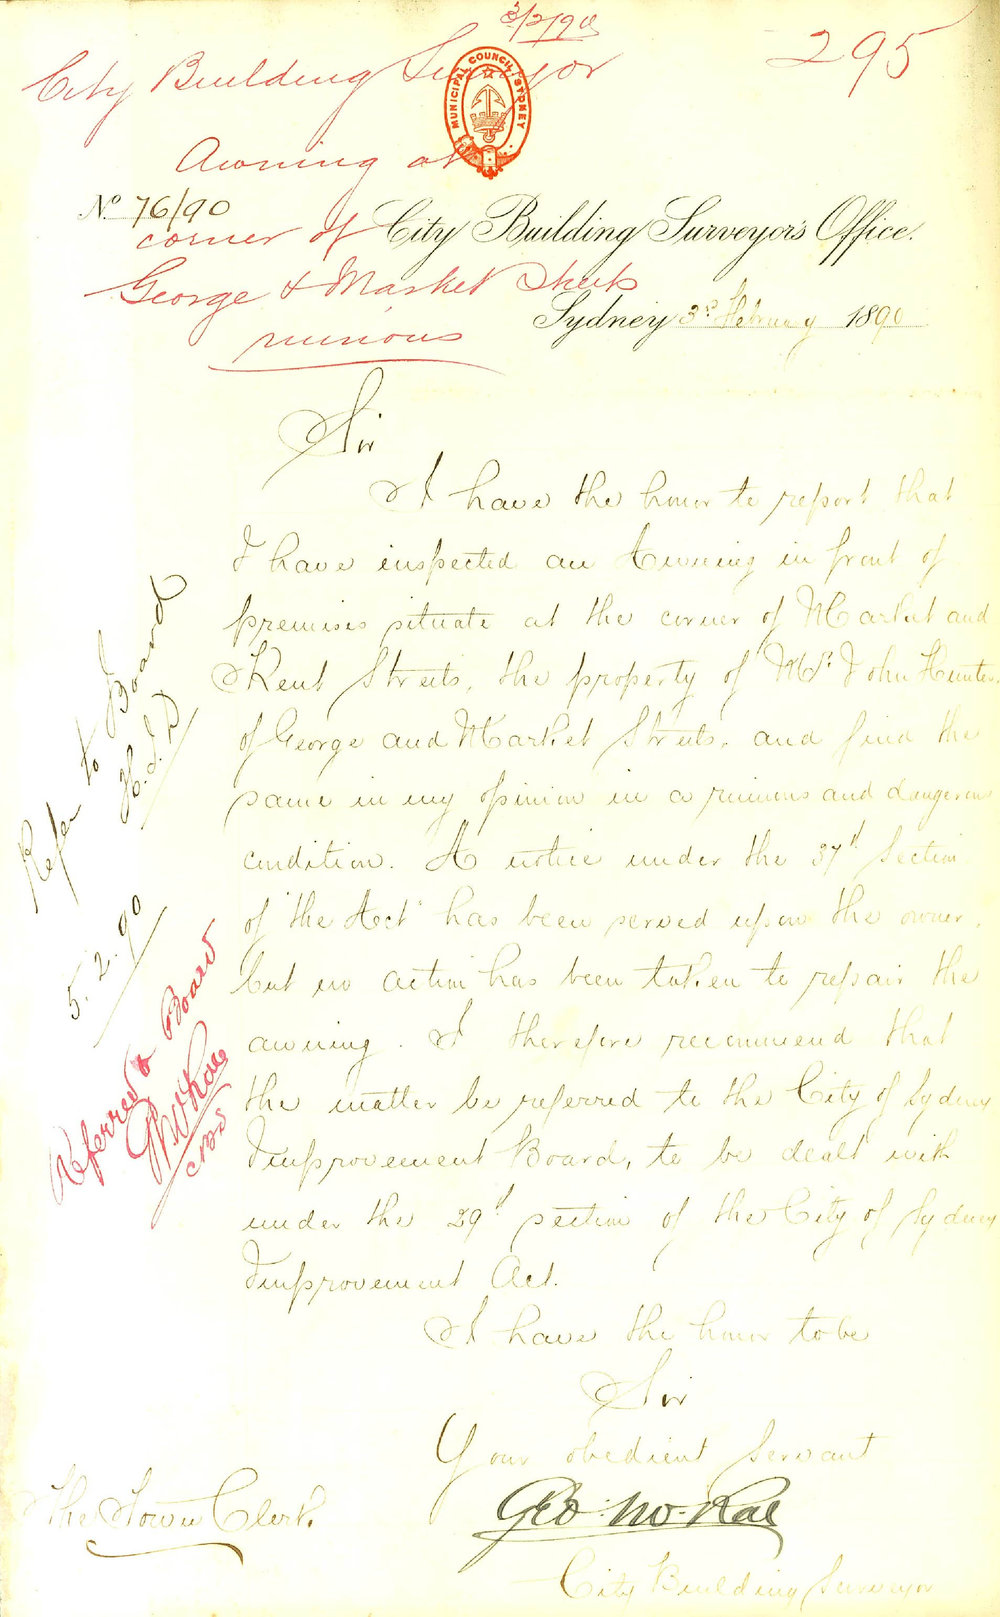 3/2/90
295
City Building Surveyor
MUNICIPAL COUNCIL SYDNEY
Awning at
No 76/90
corner of
City Building Surveyor's Office.
George & Market Streets
Sydney 3rd February 1890
ruinous
Sir
I have the honor to report that
I have inspected an Awning in front of
premises situate at the corner of Market and
Kent Streets, the property of Mr. John Hunter
of George and Market Streets, and find the
same in my opinion in a ruinous and dangerous
condition. A notice under the 37th Section
of "the Act" has been served upon the owner,
but no action has been taken to repair the
awning. I therefore recommend that
the matter be referred to the City of Sydney
Improvement Board, to be dealt with
under the 29th section of the City of Sydney
Improvement Act.
I have the honor to be
Sir
Your obedient Servant
Geo. McRae
City Building Surveyor
The Town Clerk.
Refer to Board
H.J.D
5.2.90
Referred to Board
GMcRae
CBS